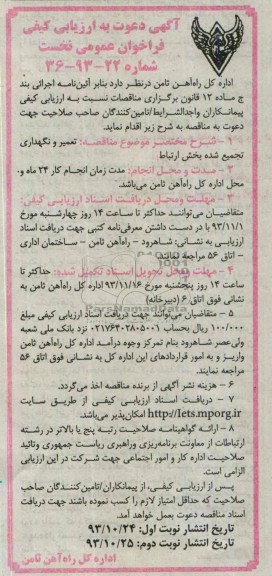 آگهی دعوت به ارزیابی کیفی
فراخوان عمومی نخست
شماره ۲۲-۹۳-۳۶
اداره کل راه‌آهن ثامن درنظر دارد بنابر آئین‌نامه اجرائی بند
ج ماده ۱۲ قانون برگزاری مناقصات نسبت به ارزیابی کیفی
پیمانکاران واجدالشرایط/تامین‌کنندگان صاحب صلاحیت جهت
دعوت به مناقصه به شرح زیر اقدام نماید.
۱ - شرح مختصر موضوع مناقصه: تعمیر و نگهداری
تجمیع شده بخش ارتباط
۲ - مدت و محل انجام: مدت زمان انجام کار ۲۴ ماه و
محل اداره کل راه‌آهن ثامن می‌باشد.
۳ - مهلت ومحل دریافت اسناد ارزیابی کیفی:
متقاضیان می‌توانند حداکثر تا ساعت ۱۴ روز چهارشنبه مورخ
۹۳/۱۱/۱ با در دست داشتن معرفی‌نامه کتبی جهت دریافت اسناد
ارزیابی به نشانی: شاهرود - راه‌آهن ثامن - ساختمان اداری
- اتاق ۵۶ مراجعه نمایند.
۴ - مهلت ومحل تحویل اسناد تکمیل شده: حداکثر تا
ساعت ۱۴ روز پنجشنبه مورخ ۹۳/۱۱/۱۶ اداره کل راه‌آهن ثامن به
نشانی فوق اتاق ۶ (دبیرخانه)
۵ - متقاضیان می‌توانند جهت دریافت اسناد ارزیابی کیفی مبلغ
۱۰۰/۰۰۰ ریال بحساب ۰۲۱۷۶۴۰۲۸۰۵۰۰۱ نزد بانک ملی شعبه
ولی‌عصر شاهرود بنام تمرکز وجوه درآمد اداره کل راه‌آهن ثامن
واریز و به امور قراردادهای این اداره کل به نشانی فوق اتاق ۵۶
مراجعه نمایند.
۶ - هزینه نشر آگهی از برنده مناقصه اخذ می‌گردد.
۷ - دریافت اسناد ارزیابی کیفی از طریق سایت
http://Iets.mporg.ir امکان‌پذیر می‌باشد.
۸ - ارائه گواهینامه صلاحیت رتبه پنج یا بالاتر در رشته
ارتباطات از معاونت برنامه‌ریزی وراهبری ریاست جمهوری وتائید
صلاحیت اداره کار و امور اجتماعی جهت شرکت در این ارزیابی
الزامی است.
پس از ارزیابی کیفی، از پیمانکاران/تامین‌کنندگان صاحب
صلاحیت که حداقل امتیاز لازم را کسب نموده باشند جهت دریافت
اسناد مناقصه دعوت بعمل خواهد آمد.
تاریخ انتشار نوبت اول: ۹۳/۱۰/۲۴
تاریخ انتشار نوبت دوم: ۹۳/۱۰/۲۵
اداره کل راه‌آهن ثامن